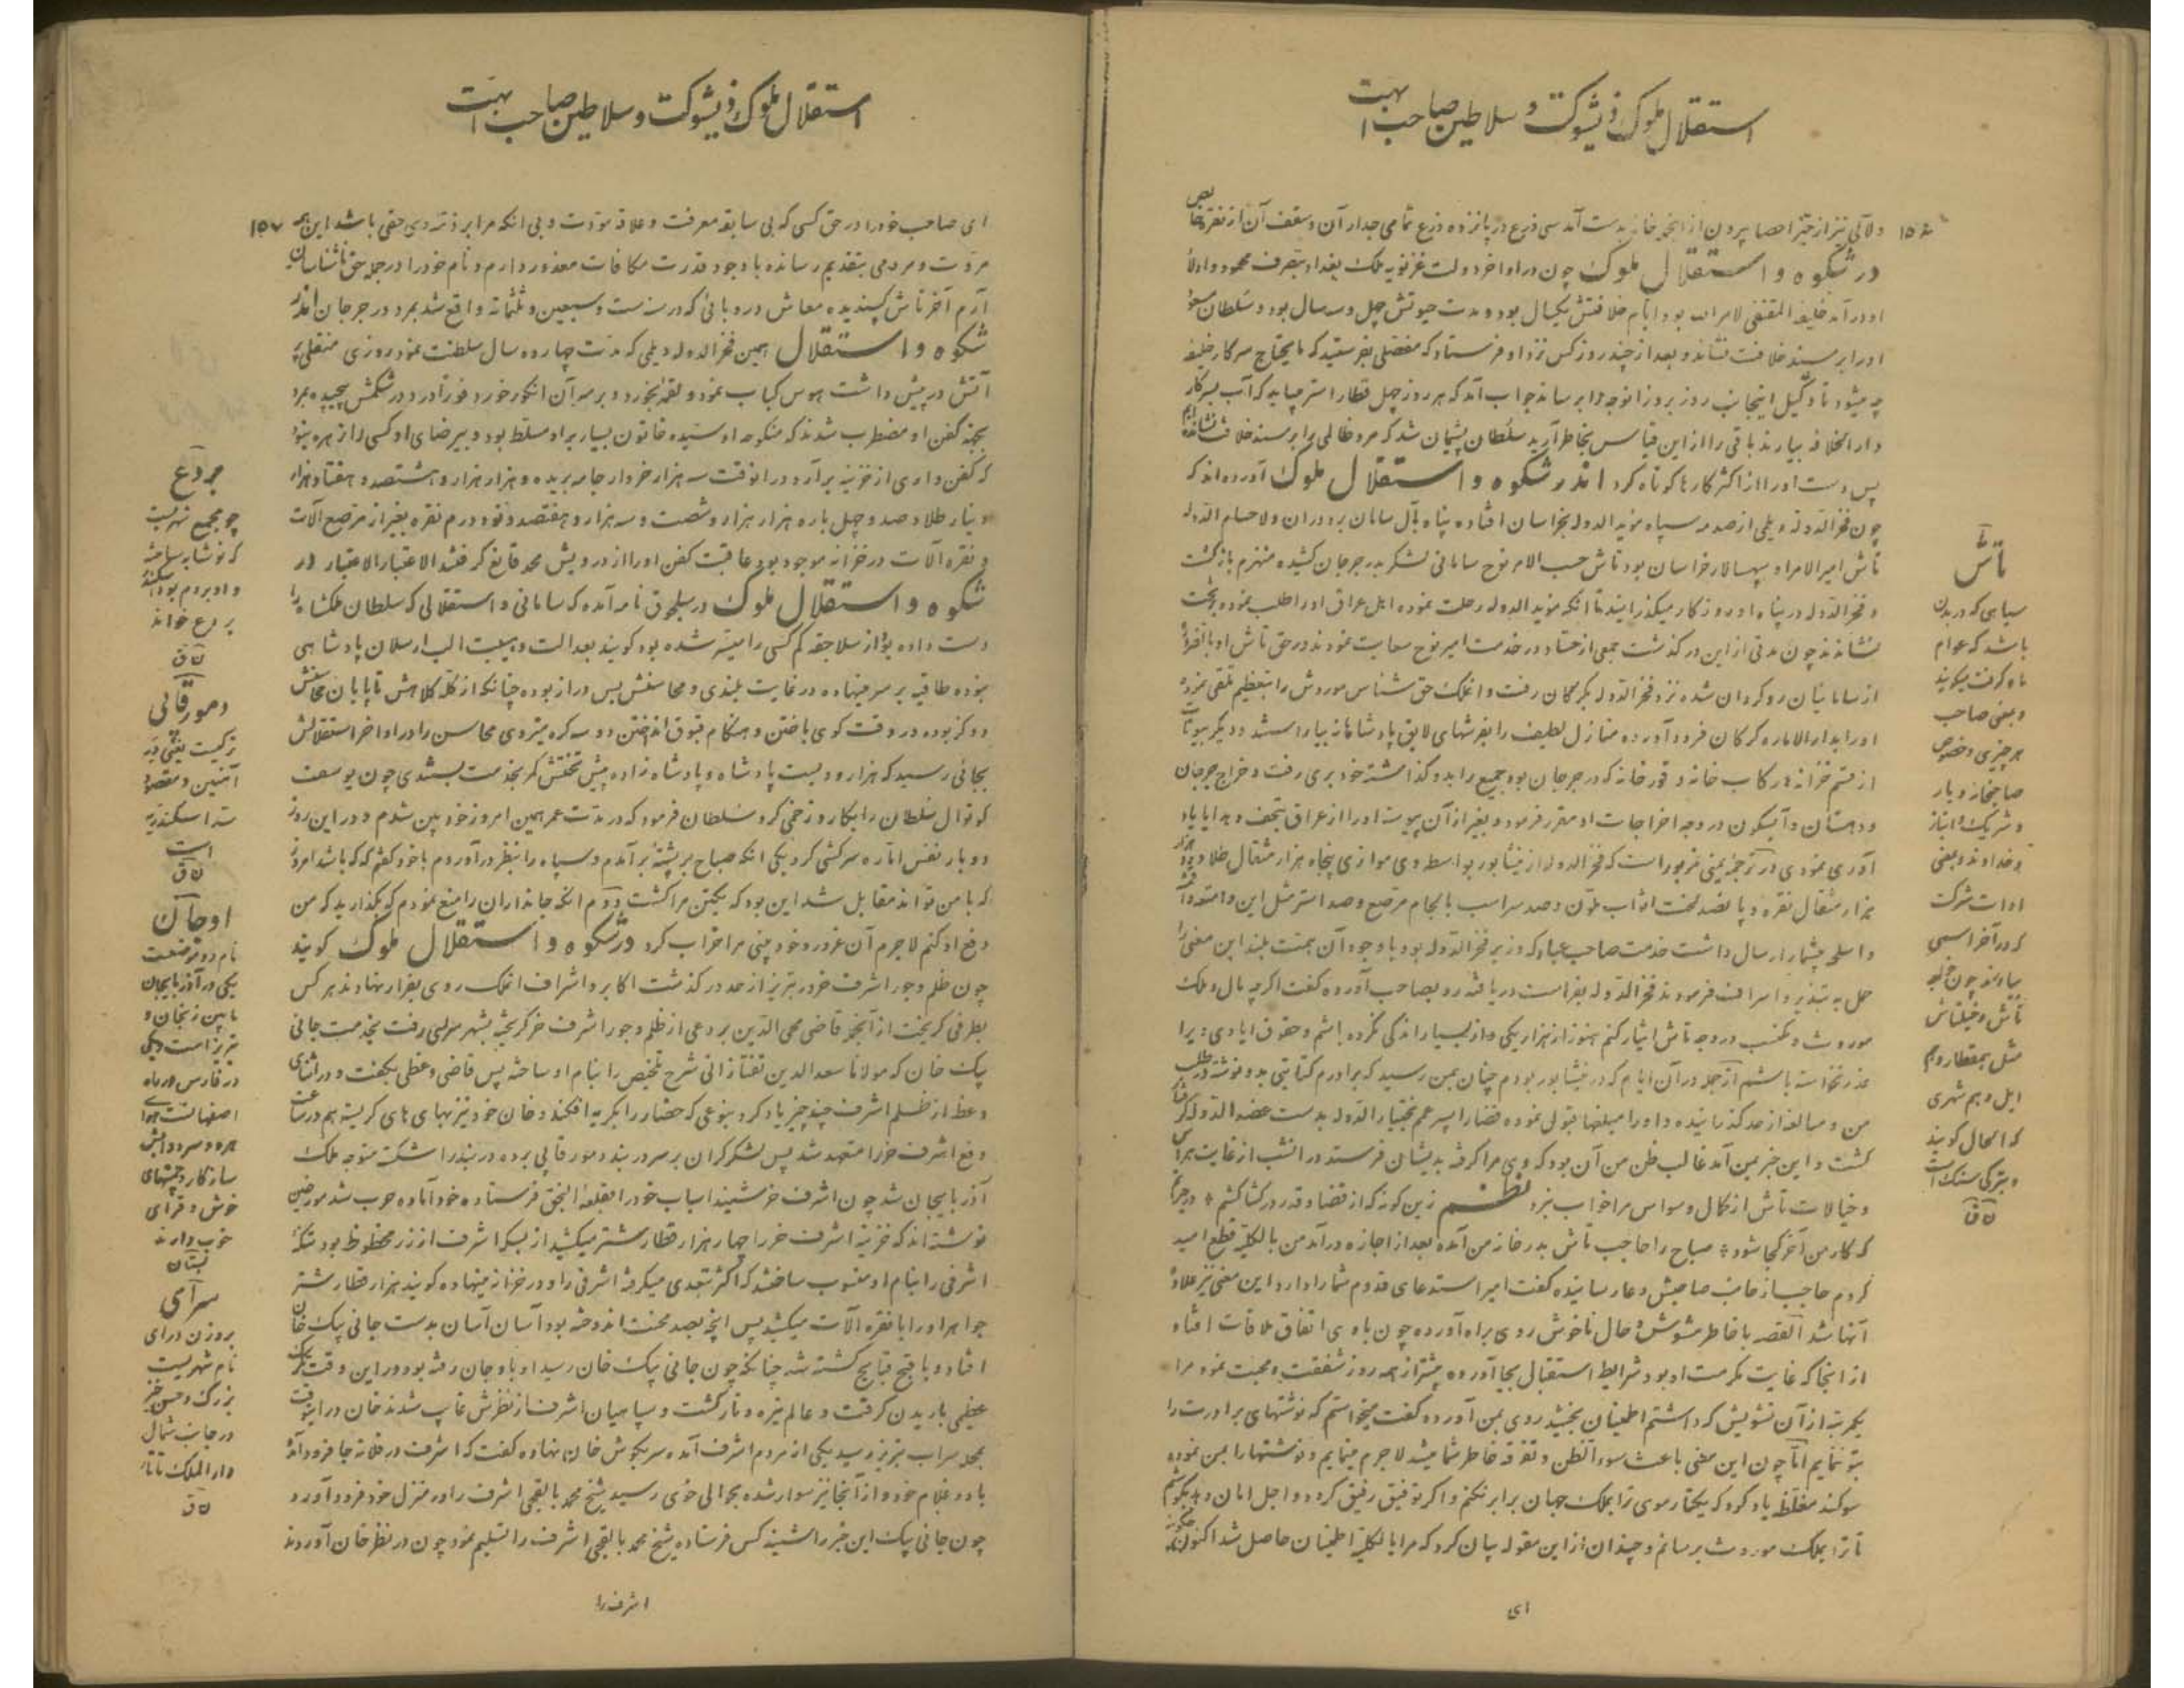 استقلال ملوک ذیشوکت و سلاطین صاحب ابهت
ولآلی نیز از حیز احصا بیرون از آنجمله خانه بدست آمد سی ذرع در پانزده ذرع تمامی جدار آن و سقف آن از نقره خالص
در شکوه و استقلال ملوک چون در اواخر دولت غزنویه ملک بغداد بتصرف محمود و اولاد
او درآمد خلیفه المقتفی لامر الله بود ایام خلافتش یکسال بود و مدت حیوتش چهل و سه سال بود و سلطان مسعود
او را بر مسند خلافت نشاند و بعد از چند روز کس نزد او فرستاد که مفصلی بفرستید که مایحتاج سرکار خلیفه
چه میشود تا وکیل اینجانب روز بروز آنوجه را برساند جواب آمد که هر روز چهل قطار استر میباید که آب بسرکار
دار الخلافه بیارند باقی را از این قیاس بخاطر آرید سلطان پشیمان شد که مرد ظالمی را بر مسند خلافت نشانده‌ایم
پس دست او را از اکثر کارها کوتاه کرد اندر شکوه و استقلال ملوک آورده‌اند که
چون فخر الدوله دیلمی از صدمه سپاه مؤید الدوله بخراسان افتاده پناه بآل سامان برد و ران ولا حسام الدوله
تاش امیر الامرا و سپهسالار خراسان بود تاش حسب الامر نوح سامانی لشکر بدر جرجان کشیده منهزم بازگشت
و فخر الدوله در پناه او روزگار میگذرانید تا آنکه مؤید الدوله رحلت نموده اهل عراق او را طلب نموده بتخت
نشاندند چون مدتی از این درگذشت جمعی از حساد در خدمت امیر نوح سعایت نمودند در حق تاش او بالضروره
از سامانیان روگردان شده نزد فخر الدوله بگرگان رفت و آنملک حق شناس موردش را بتعظیم تلقی نموده
او را بدار الاماره گرگان فرود آورده منازل لطیف را بفرشهای لایق پادشاهانه بیاراستند و دیگر بیوتات
از قسم خزانه و رکاب خانه و قورخانه که در جرجان بود جمیع را بدو گذاشته خود بری رفت و خراج جرجان
و دهستان و آبسکون در وجه اخراجات او مقرر فرمود و بغیر از آن پیوسته او را از عراق بتحف و هدایا یاد
آوری نمودی در ترجمه یمینی مزبور است که فخر الدوله از نیشابور بواسطه وی موازی پنجاه هزار مثقال طلا و دو هزار
هزار مثقال نقره و پانصد تخت اثواب ملون و صد سر اسب با لجام مرصع و صد استر مثل این و امتعه و اقمشه
و اسلحه بیشمار ارسال داشت خدمت صاحب عباد که وزیر فخر الدوله بود با وجود آن همت بلند این معنی را
حمل به تبذیر و اسراف فرمودند فخر الدوله بفراست دریافته رو بصاحب آورده گفت اگر چه مال و ملک
موروث و مکتسب در وجه تاش ایثار کنم هنوز از هزار یکی و از بسیار اندکی نکرده باشم و حقوق ایادی ویرا
عذر نخواسته باشم از جمله در آن ایام که در نیشابور بودم چنان بمن رسید که برادرم کتابتی بدو نوشته در طلب
من و مبالغه از حد گذرانیده و او را مبلغها قبول نموده قضا را پسر عمم بختیار الدوله بدست عضد الدوله گرفتار
گشت و این خبر بمن آمد غالب ظن من آن بود که وی مرا گرفته بدیشان فرستد در آنشب از غایت هراس
و خیالات تاش از کمال وسواس مرا خواب نبرد نظم زین گونه که از قضا و قدر در کشاکشم * در حیرتم
که کار من آخر کجا شود * صباح را حاجب تاش بدر خانه من آمده بعد از اجازه درآمد من بالکلیه قطع امید
کردم حاجب از جانب صاحبش دعا رسانیده گفت امیر استدعای قدوم شما را دارد این معنی نیز علاوه
آنها شد القصه با خاطر مشوش و حال ناخوش روی براه آورده چون با وی اتفاق ملاقات افتاد
از آنجا که غایت مکرمت او بود شرایط استقبال بجا آورده بیشتر از همه روز شفقت و محبت نمود مرا
یکمرتبه از آن تشویش که داشتم اطمینان بخشید روی بمن آورده گفت میخواستم که نوشتهای برادرت را
بتو ننمایم اما چون این معنی باعث سوء الظن و تفرقه خاطر شما میشد لاجرم مینمایم و نوشتها را بمن نموده
سوگند مغلظ یاد کرد که یکتار موی ترا بملک جهان برابر نکنم و اگر توفیق رفیق گردد و اجل امان دهد بکوشم
تا ترا بملک موروث برسانم و چندان از این مقوله بیان کرد که مرا بالکلیه اطمینان حاصل شد اکنون چگونه
ای
۱۵۶
تاش
سیاهی که در بدن
باشد که عوام
ماه گرفت میگویند
و بمعنی صاحب
هر چیزی و خصوص
صاحبخانه و یار
و شریک و انباز
و خداوند و بمعنی
ادات شرکت
که در آخر اسمی
بیاورند چون خواجه
تاش و خیلتاش
مثل همقطار و هم
ایل و هم شهری
که الحال گویند
و بترکی سنک است
ن ق
استقلال ملوک ذیشوکت و سلاطین صاحب ابهت
۱۵۷
ای صاحب خود را در حق کسی که بی سابقه معرفت و علاقه مودت و بی آنکه مرا بر ذمه وی حقی باشد این همه
مروت و مردمی بتقدیم رسانده با وجود قدرت مکافات معذور دارم و نام خود را در جمله حق ناشناسان
آرم آخر تاش پسندیده معاش در وبائی که در سنه ست و سبعین و ثلثمائه واقع شد بمرد در جرجان اندر
شکوه و استقلال همین فخر الدوله دیلمی که مدت چهارده سال سلطنت نمود روزی منقلی پر
آتش در پیش داشت هوس کباب نمود و لقمه بخورد و بر سر آن انگور خورد فوراً درد در شکمش پیچیده بمرد
بجهة کفن او مضطرب شدند که منکوحه او سیده خاتون بسیار بر او مسلط بود و بیرضای او کسی را زهره نبود
که کفن واری از خزینه برآرد در آنوقت سه هزار خروار جامه بریده و هزار هزار و هشتصد و هفتاد هزار
دینار طلا و صد و چهل باره هزار هزار و شصت و سه هزار و هفتصد و نود درم نقره بغیر از مرصع آلات
و نقره آلات در خزانه موجود بود عاقبت کفن او را از درویش محمد قانع گرفتند الاعتبار الاعتبار در
شکوه و استقلال ملوک در سلجوق نامه آمده که سامانی و استقلالی که سلطان ملکشاه را
دست داده بود از سلاجقه کم کسی را میسر شده بود گویند بعدالت و هیبت الب ارسلان پادشاهی
نبوده طاقیه بر سر مینهاده در غایت بلندی و محاسنش بس دراز بوده چنانکه از کله کلاهش تا پایان محاسنش
دو گز بوده در وقت گوی باختن و هنگام قبوق انداختن دو سه گره میزدی محاسن را و در اواخر استقلالش
بجائی رسید که هزار و دویست پادشاه و پادشاه زاده پیش تختش کمر بخدمت بستندی چون یوسف
کوتوال سلطان را بکارد زخمی کرد سلطان فرمود که در مدت عمر همین امروز خودبین شدم و در این روز
دو بار نفس اماره سرکشی کرد یکی آنکه صباح بر پشته برآمدم و سپاه را بنظر درآوردم با خود گفتم که که باشد امروز
که با من تواند مقابل شد این بود که یکتن مرا کشت دوم آنکه جانداران را منع نمودم که بگذارید که من
دفع او کنم لاجرم آن غرور و خودبینی مرا خراب کرد در شکوه و استقلال ملوک گویند
چون ظلم و جور اشرف خر در تبریز از حد درگذشت اکابر و اشراف آنملک روی بفرار نهادند هر کس
بطرفی گریخت از آنجمله قاضی محی الدین بردعی از ظلم و جور اشرف خر گریخته بشهر سرای رفت بخدمت جانی
بیک خان که مولانا سعد الدین تفتازانی شرح تلخیص را بنام او ساخته پس قاضی وعظی بگفت و در اثنای
وعظ از ظلم اشرف چند چیز یاد کرد بنوعی که حضار را بگریه افکند و خان خود نیز بهای های گریسته هم در ساعت
دفع اشرف خر را متعهد شد پس لشکر گران بر سر دربند دمور قاپی برده دربند را شکست متوجه ملک
آذربایجان شد چون اشرف خر شنید اسباب خود را بقلعه النجق فرستاده خود آماده حرب شد مورخین
نوشته‌اند که خزینه اشرف خر را چهار هزار قطار شتر میکشید از بسکه اشرف از زر محظوظ بود سکه
اشرفی را بنام او منسوب ساختند که اکثر بتعدی میگرفته اشرفی را و در خزانه مینهاده گویند هزار قطار شتر
جواهر او را با نقره آلات میکشید پس آنچه بصد محنت اندوخته بود آسان آسان بدست جانی بیک خان
افتاد و با قبح قبایح کشته شد چنانکه چون جانی بیک خان رسید او باوجان رفته بود در این وقت تگرگ
عظیمی باریدن گرفت و عالم تیره و تار گشت و سپاهیان اشرف از نظرش غایب شدند خان در اینوقت
بمحل سراب تبریز رسید یکی از مردم اشرف آمده سر بگوش خان نهاده گفت که اشرف در فلانه جا فرود آمده
با دو غلام خود و از آنجا نیز سوار شده بحوالی خوی رسید شیخ محمد بالقچی اشرف را در منزل خود فرود آورد
چون جانی بیک این خبر را شنید کس فرستاده شیخ محمد بالقچی اشرف را تسلیم نمود چون در نظر خان آوردند
اشرف را
بردع
چو مجمع شهریست
که نوشابه ساخته
بردع خوانند
ن ق
دمور قاپی
ترکیست یعنی در
آهنین و مقصود
سد اسکندریه
است
ن ق
اوجان
نام دو موضعست
یکی در آذربایجان
مابین زنجان و
تبریز است و یکی
در فارس در راه
اصفهانست هوای
سازگار و چشمهای
خوش و قرای
خوب دارند
بستان
سرای
بروزن درای
نام شهریست
بزرگ و حسن خیز
در جانب شمال
دار الملک تاتار
ن ق